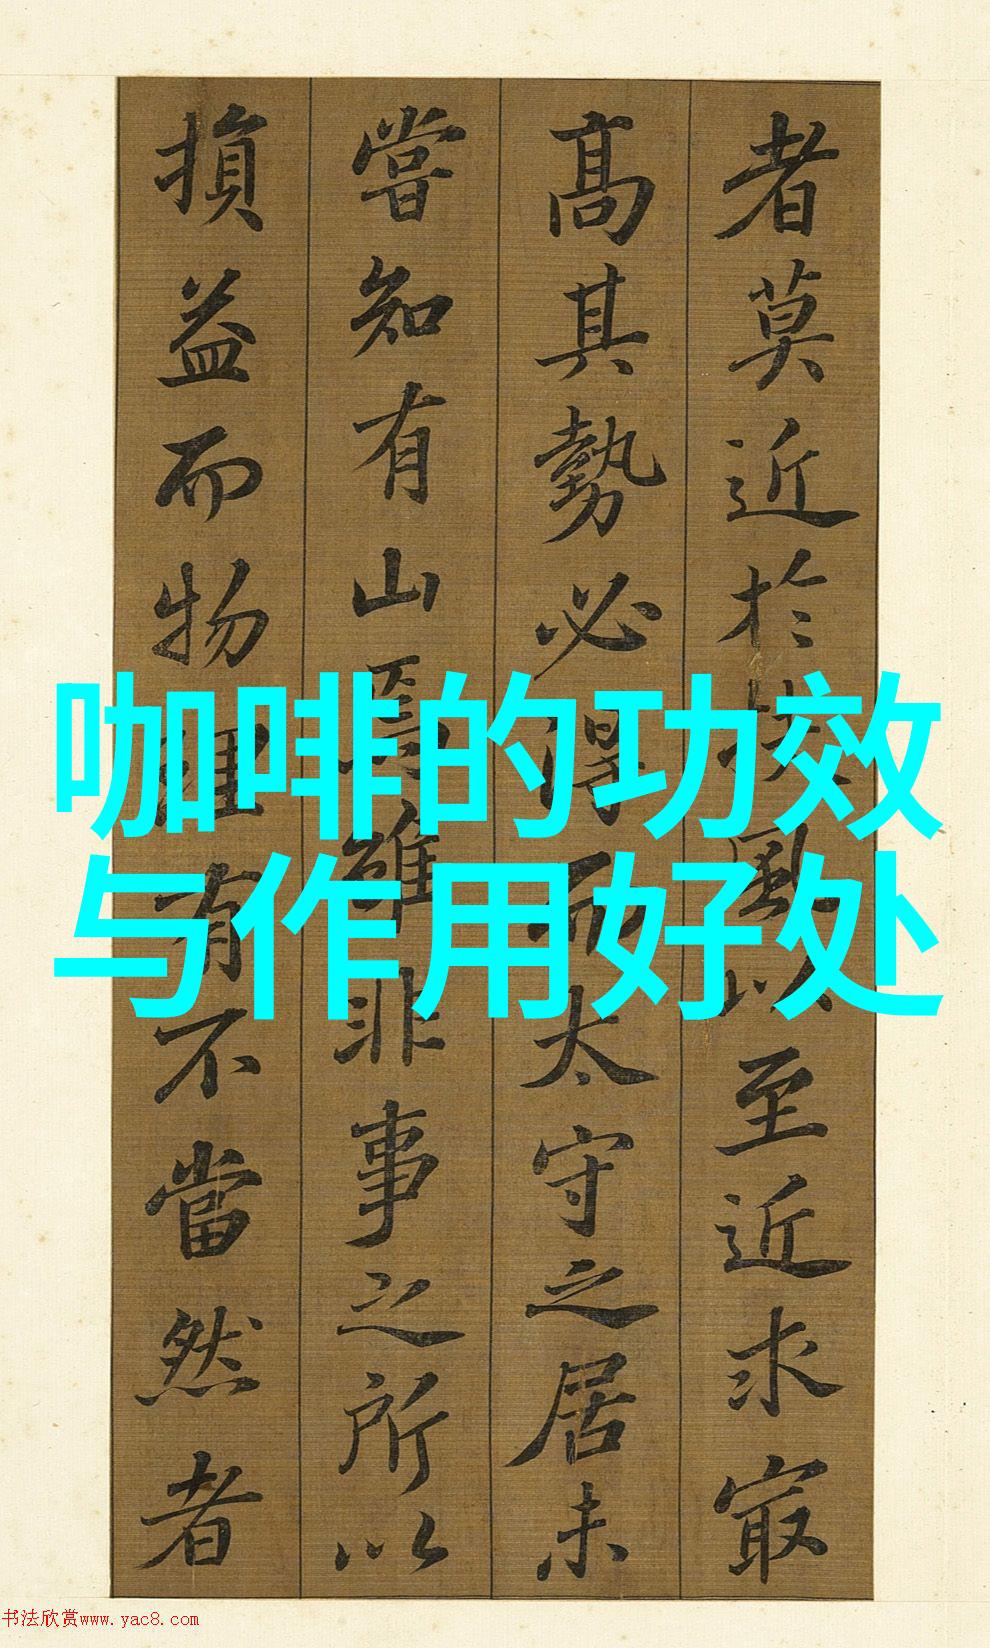 咖啡的功效
与作用好处
者莫近於扶風以至近求㝡
髙其勢必得而太守之居未
嘗知有山焉雖非事之所以
損益而物理有不當然者
书法欣赏www.yac8.com